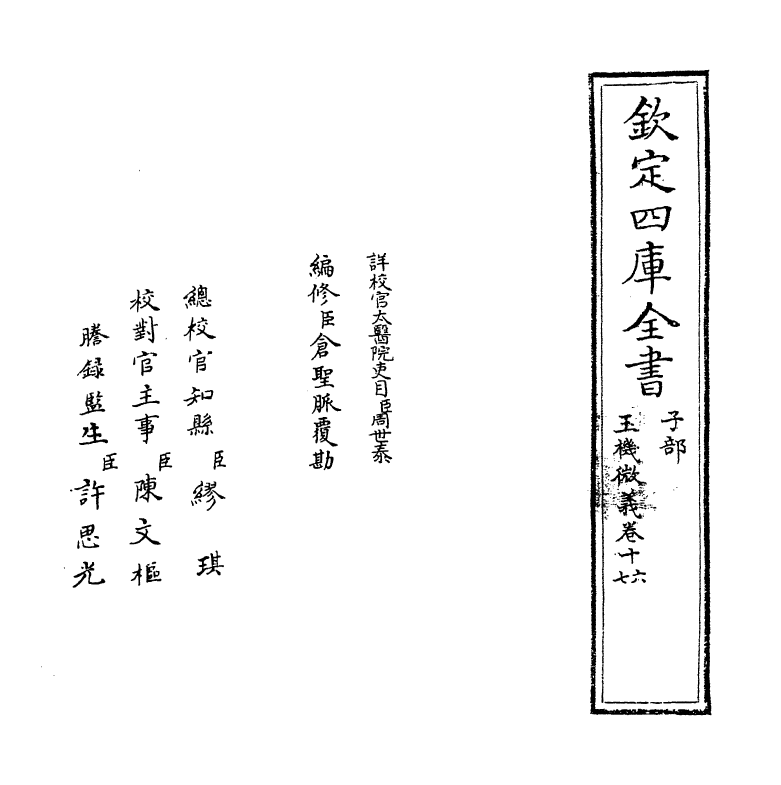 欽定四庫全書
子部
玉機微義卷十六
七
詳校官太醫院吏目臣周世泰
編修臣倉聖脈覆勘
總校官知縣臣繆琪
校對官主事臣陳文樞
謄錄監生臣許思光